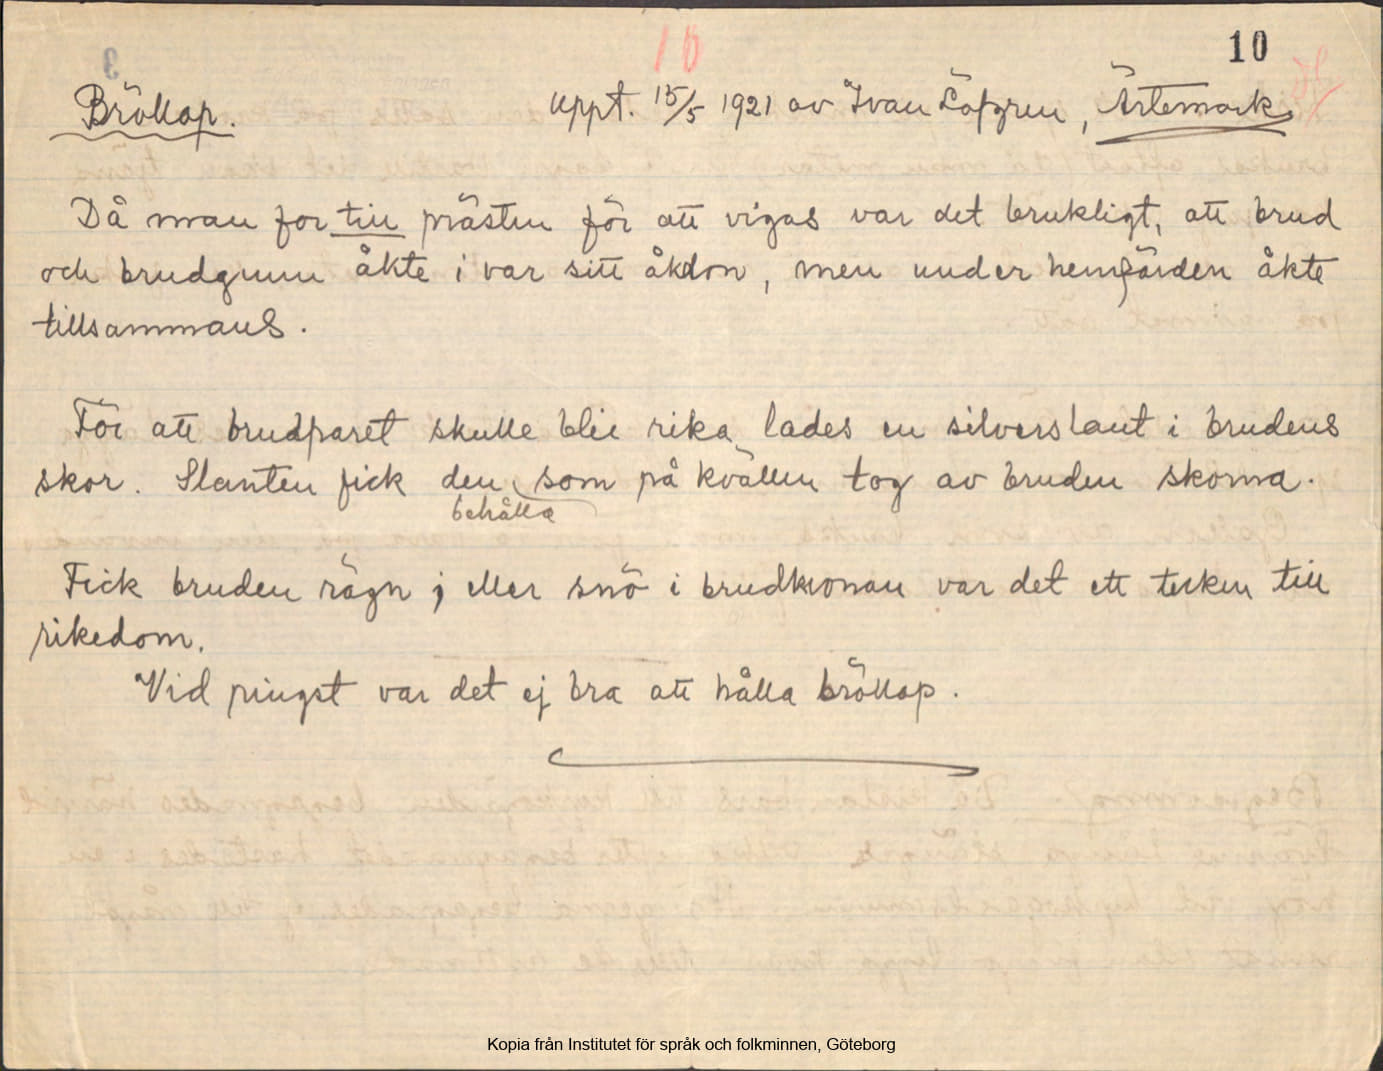 10 10
Bröllop. Uppt. 15/5 1921 av Ivan Löfgren, Ärtemark
Då man for till prästen för att vigas var det brukligt, att brud
och brudgum åkte i var sitt åkdon, men under hemfärden åkte
tillsammans.
För att brudparet skulle bli rika lades en silverslant i brudens
skor. Slanten fick den, som på kvällen tog av bruden skorna.
behålla
Fick bruden rägn j eller snö i brudkronan var det ett tecken till
rikedom.
Vid pingst var det ej bra att hålla bröllop.
Kopia från Institutet för språk och folkminnen, Göteborg